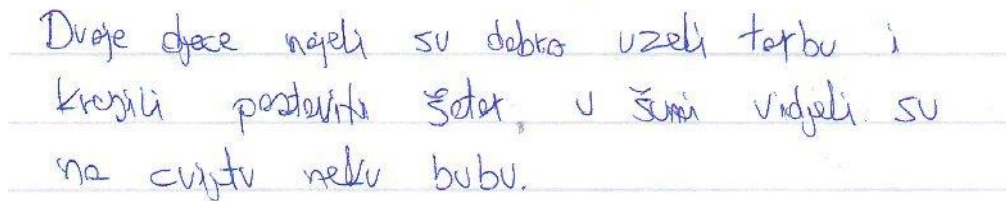 Dvoje djece najeli su dobro uzeli torbu i
krenili postaviti šator. u šumi vidjeli su
na cvijtu neku bubu.